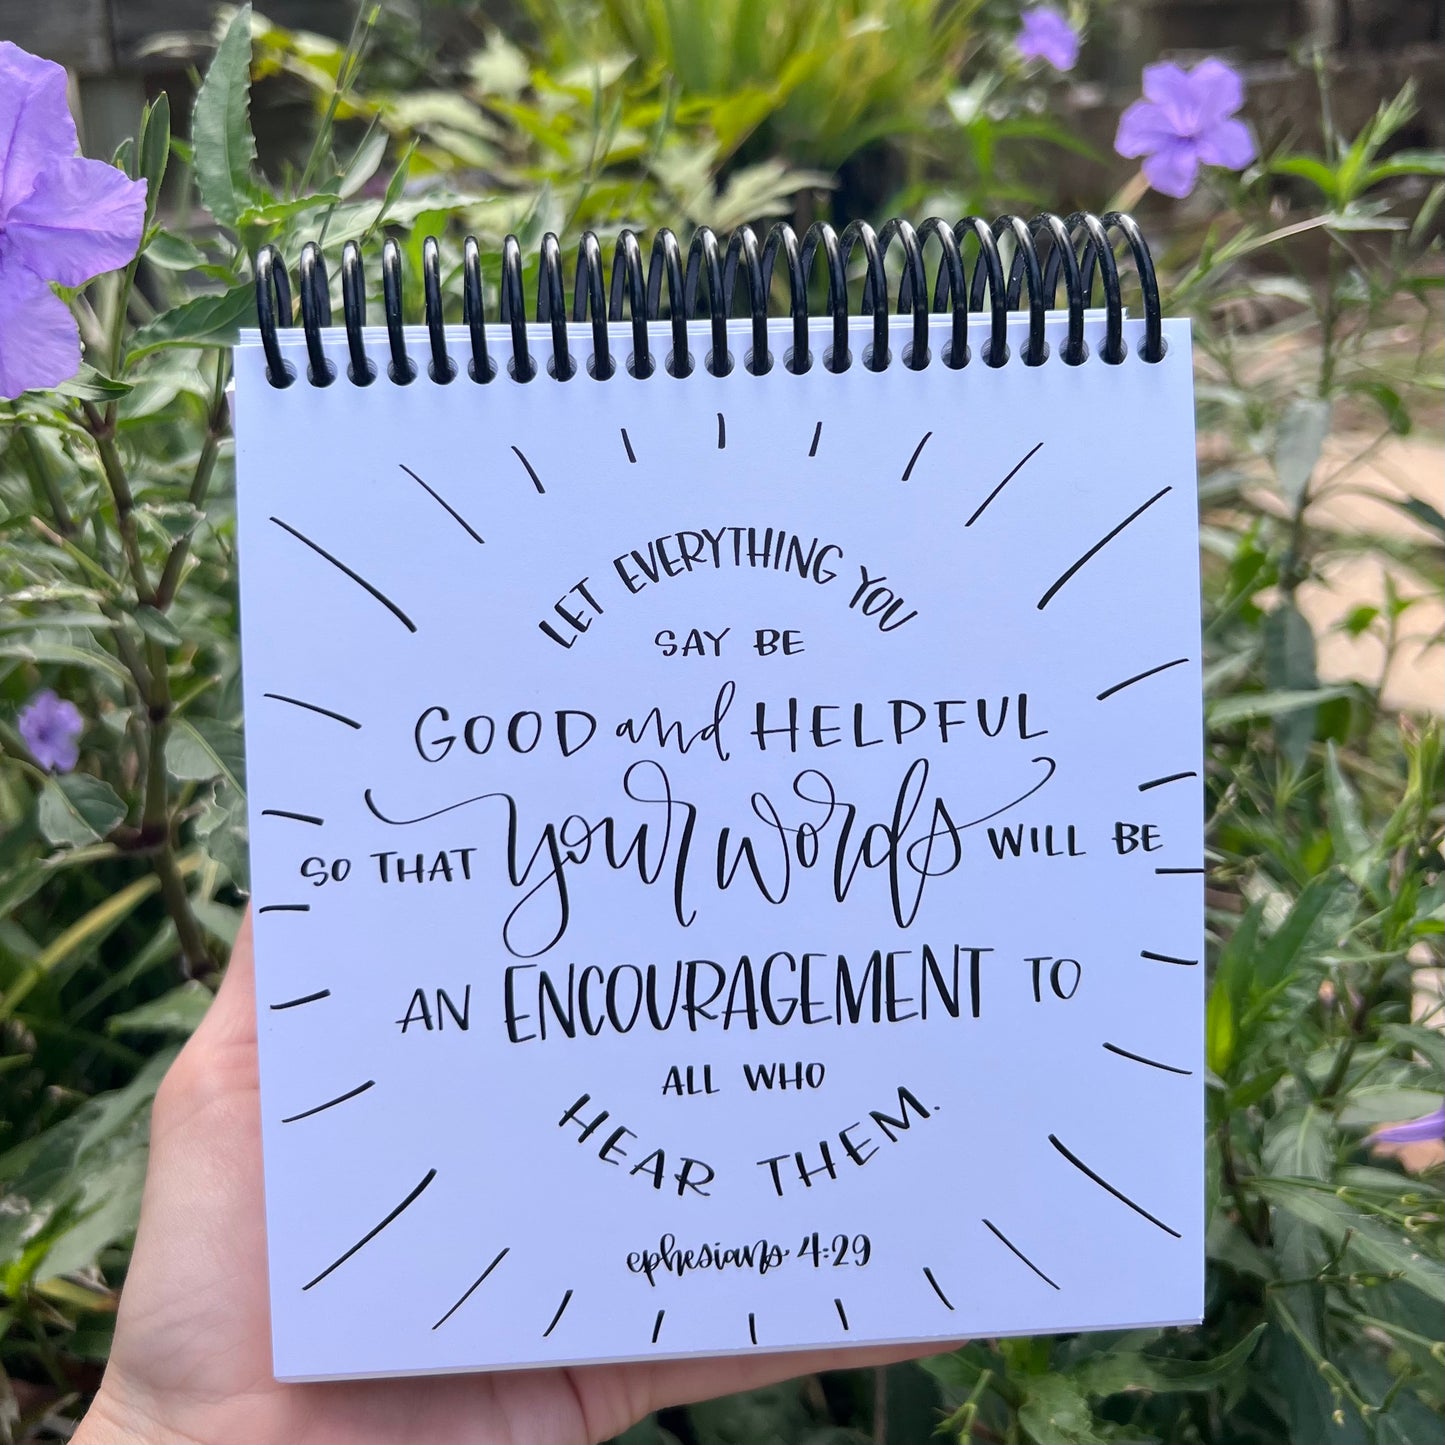 LET EVERYTHING YOU
SAY BE
GOOD and HELPFUL
SO THAT your words WILL BE
AN ENCOURAGEMENT TO
ALL WHO
HEAR THEM.
ephesians 4:29